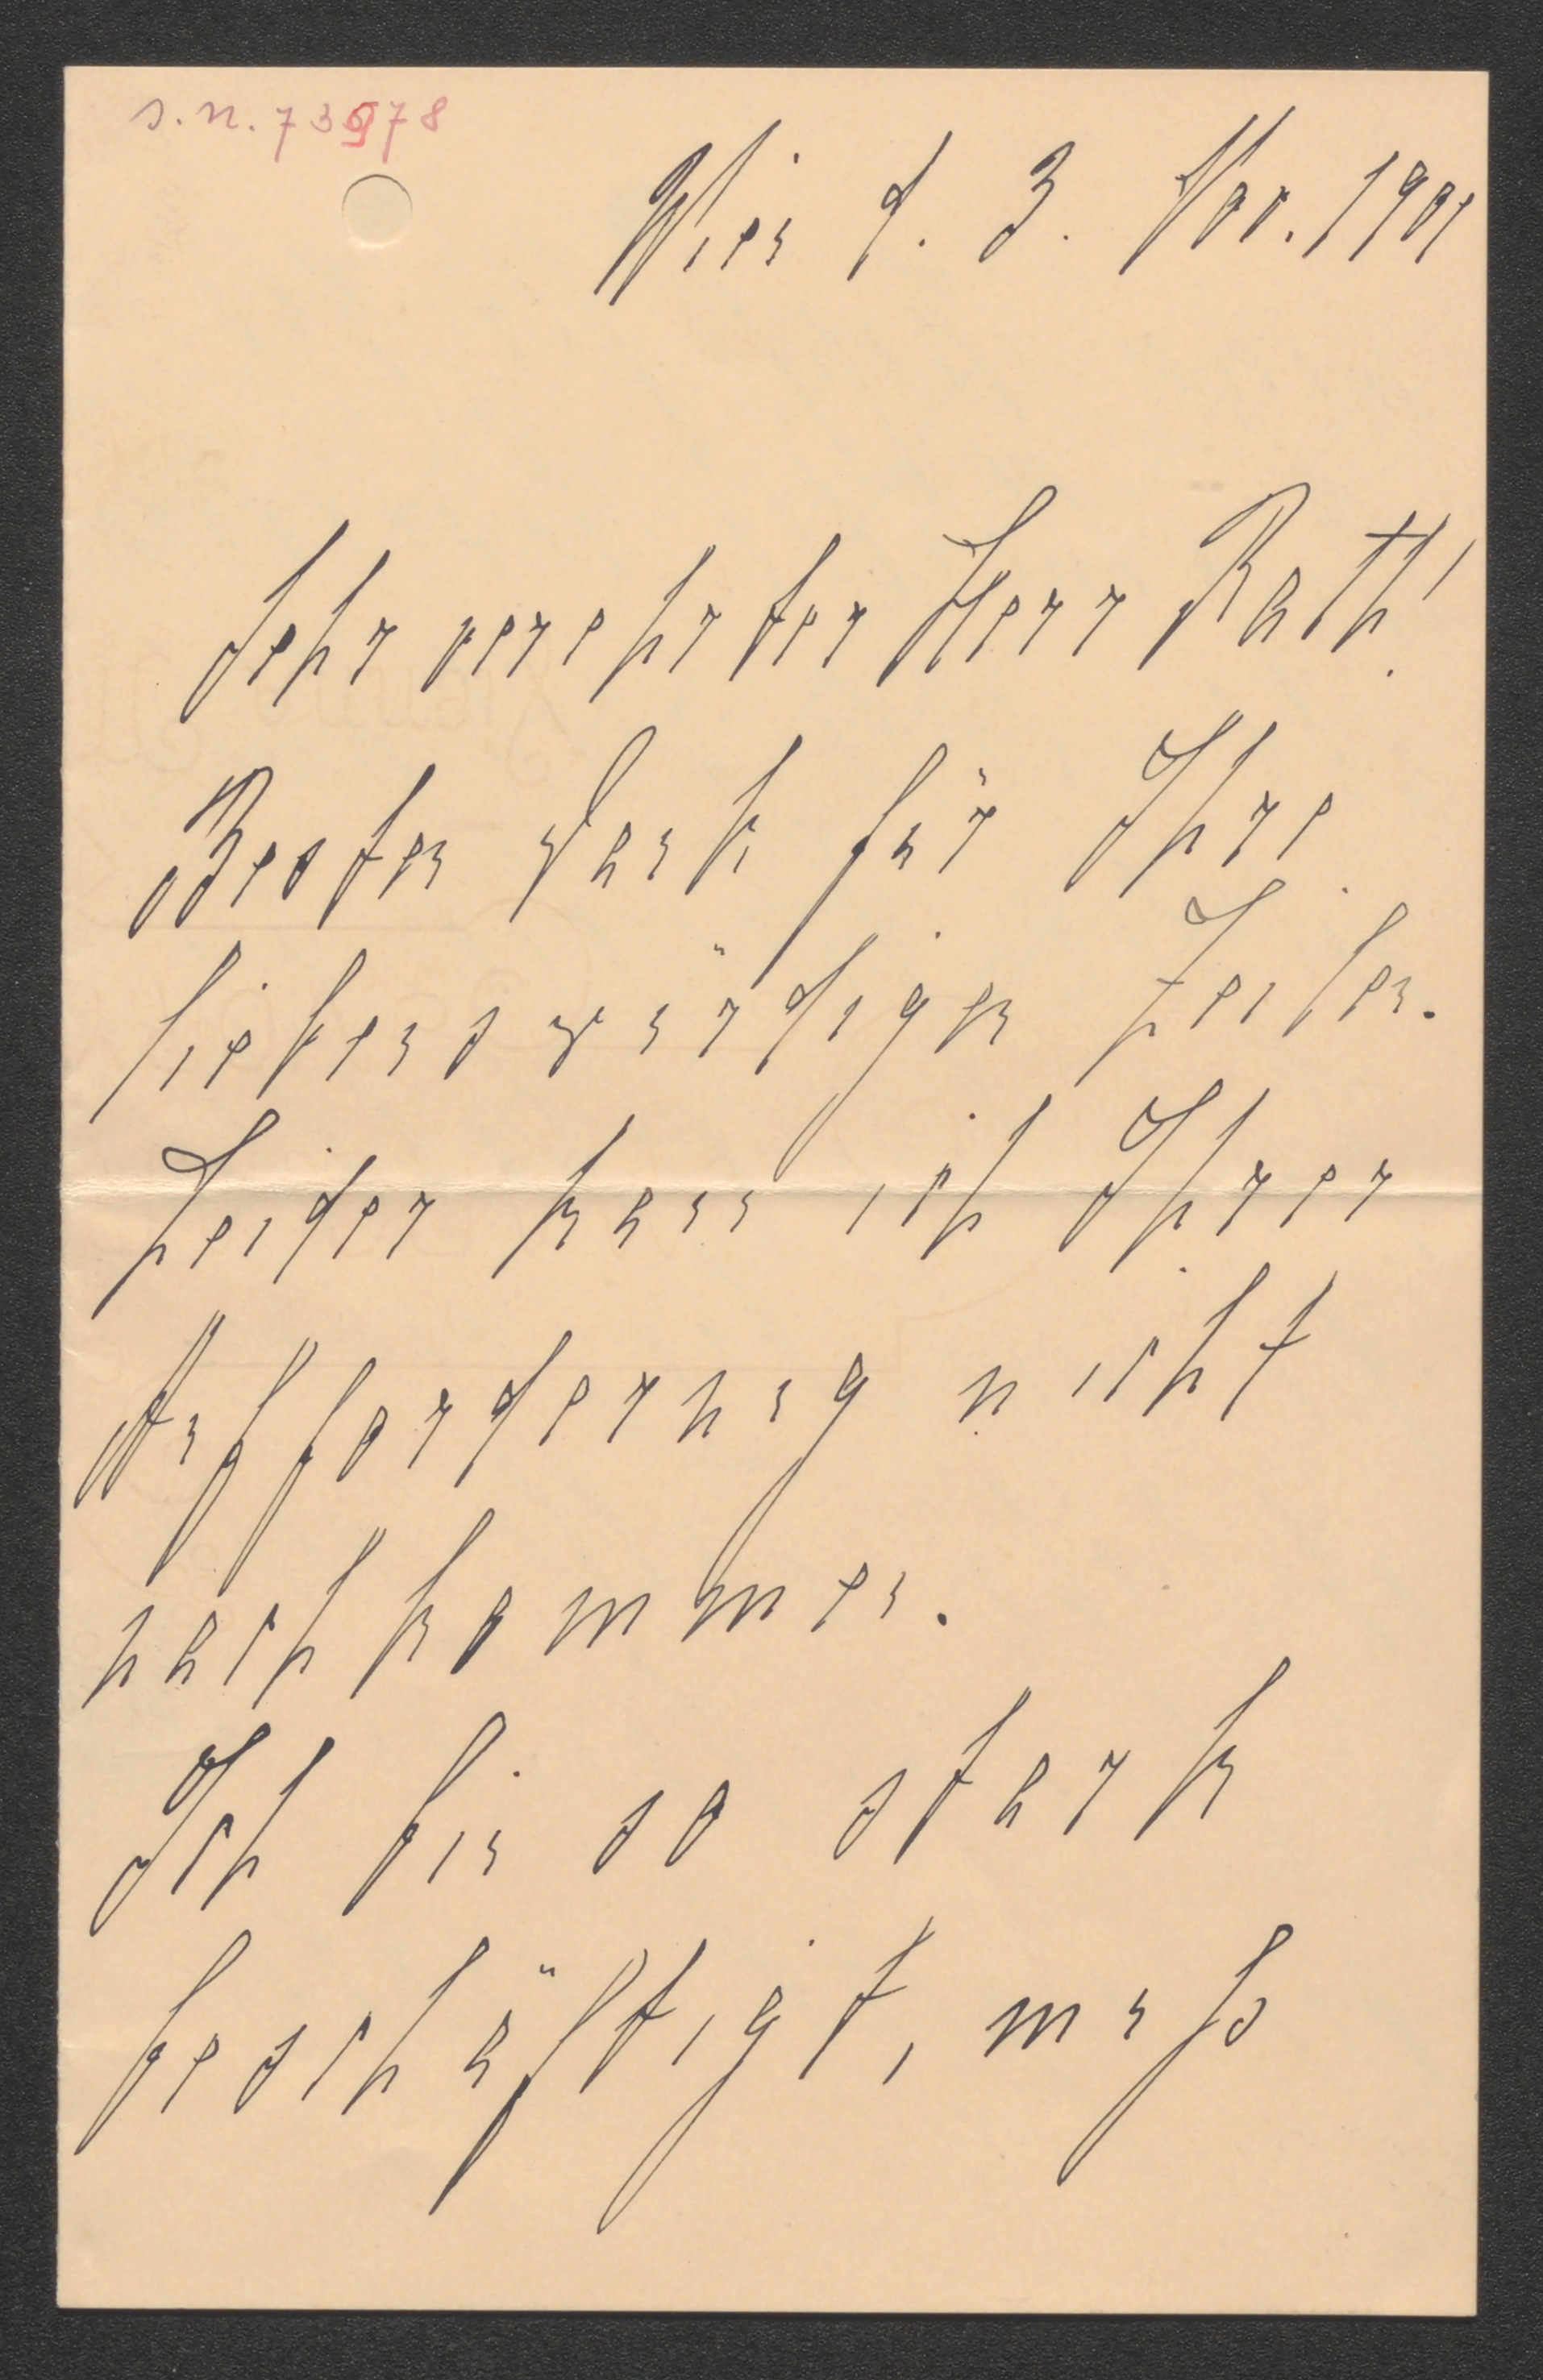 s. n. 73978
Wien d. 3. Nov. 1901
Sehr verehrter Herr Rath!
Besten Dank für Ihre
liebenswürdigen Zeilen.
Leider kann ich Ihrer
Aufforderung nicht
nachkommen.
Ich bin so stark
beschäftigt, muß